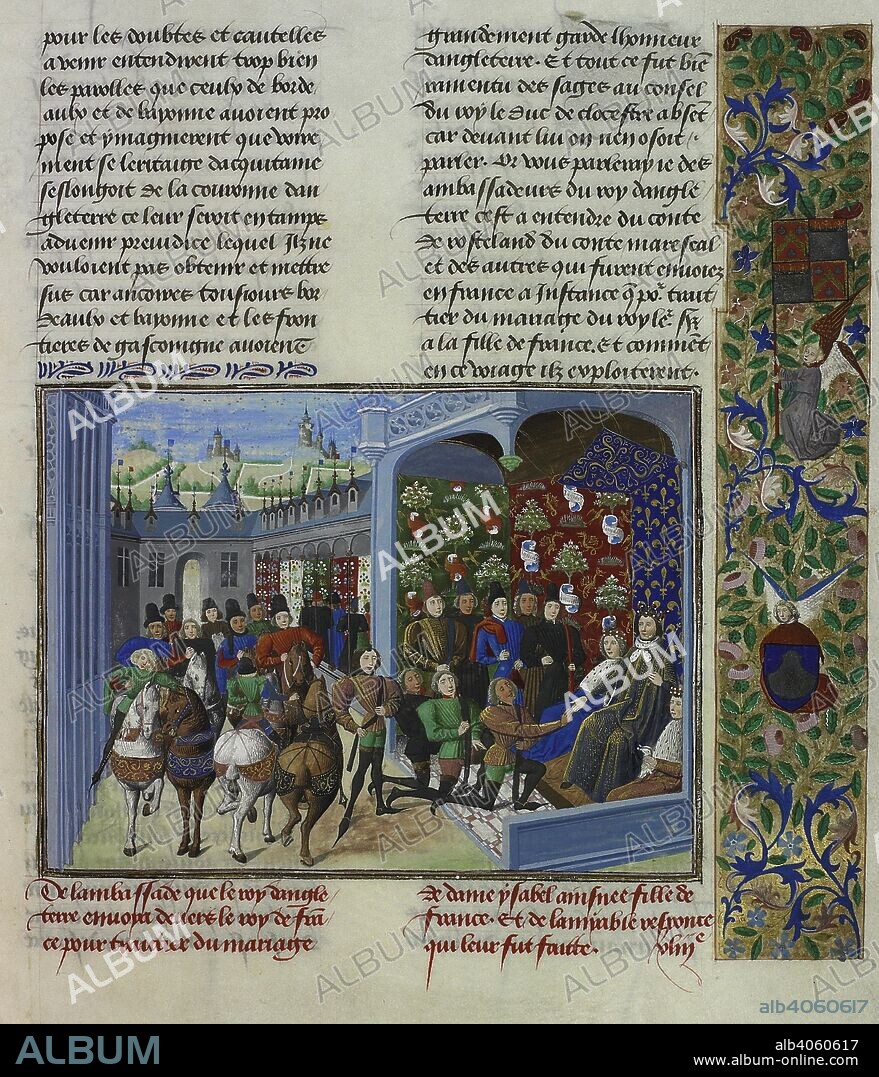 pour les doubtes et cautelles
a venir entendirent trop bien
les parolles que ceulx de borde
aulx et de bayonne avoient pro
pose et ymaginerent que voire
ment se leritaige dacquitaine
seslongoit de la couronne dan
gleterre ce leur seroit en tamps
advenir preiudice lequel Ilz ne
vouloient pas obtenir et mettre
sus car ancoires tousiours bor
deaulx et bayonne et les fron
tieres de gascoingne avoient
grandement garde lhonneur
dangleterre. Et tout ce fut bien
ramentu des sages au conseil
du roy le duc de clocestre absent
car devant lui on nen osoit
parler. Or vous parleray ie des
ambassadeurs du roy dangle
terre cest a entendre du conte
de rosteland du conte marescal
et des autres qui furent envoiez
en france a Instance que pour trait
tier du mariage du roy
a la fille de france. et comment
en ce voiage ilz exploiterent.
De lambassade que le roy dangle
terre envoya devers le roy de fran
ce pour traictier du mariage
de dame ysabel aisnee fille de
france. Et de lamyable responce
qui leur fut faitte.
ALBUM
alb4060617
ALBUM
alb4060617
album-online.com